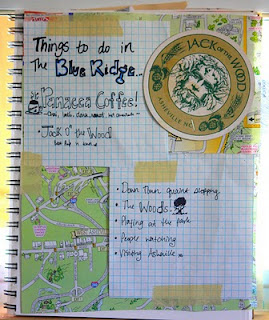 Things to do in
The Blue Ridge...
Panacea Coffee!
• Jack O' the Wood
JACK OF THE WOOD
ASHEVILLE NC
• Down Town quaint shopping
• The Woods
• Playing at the park
• People watching
• Visiting Asheville